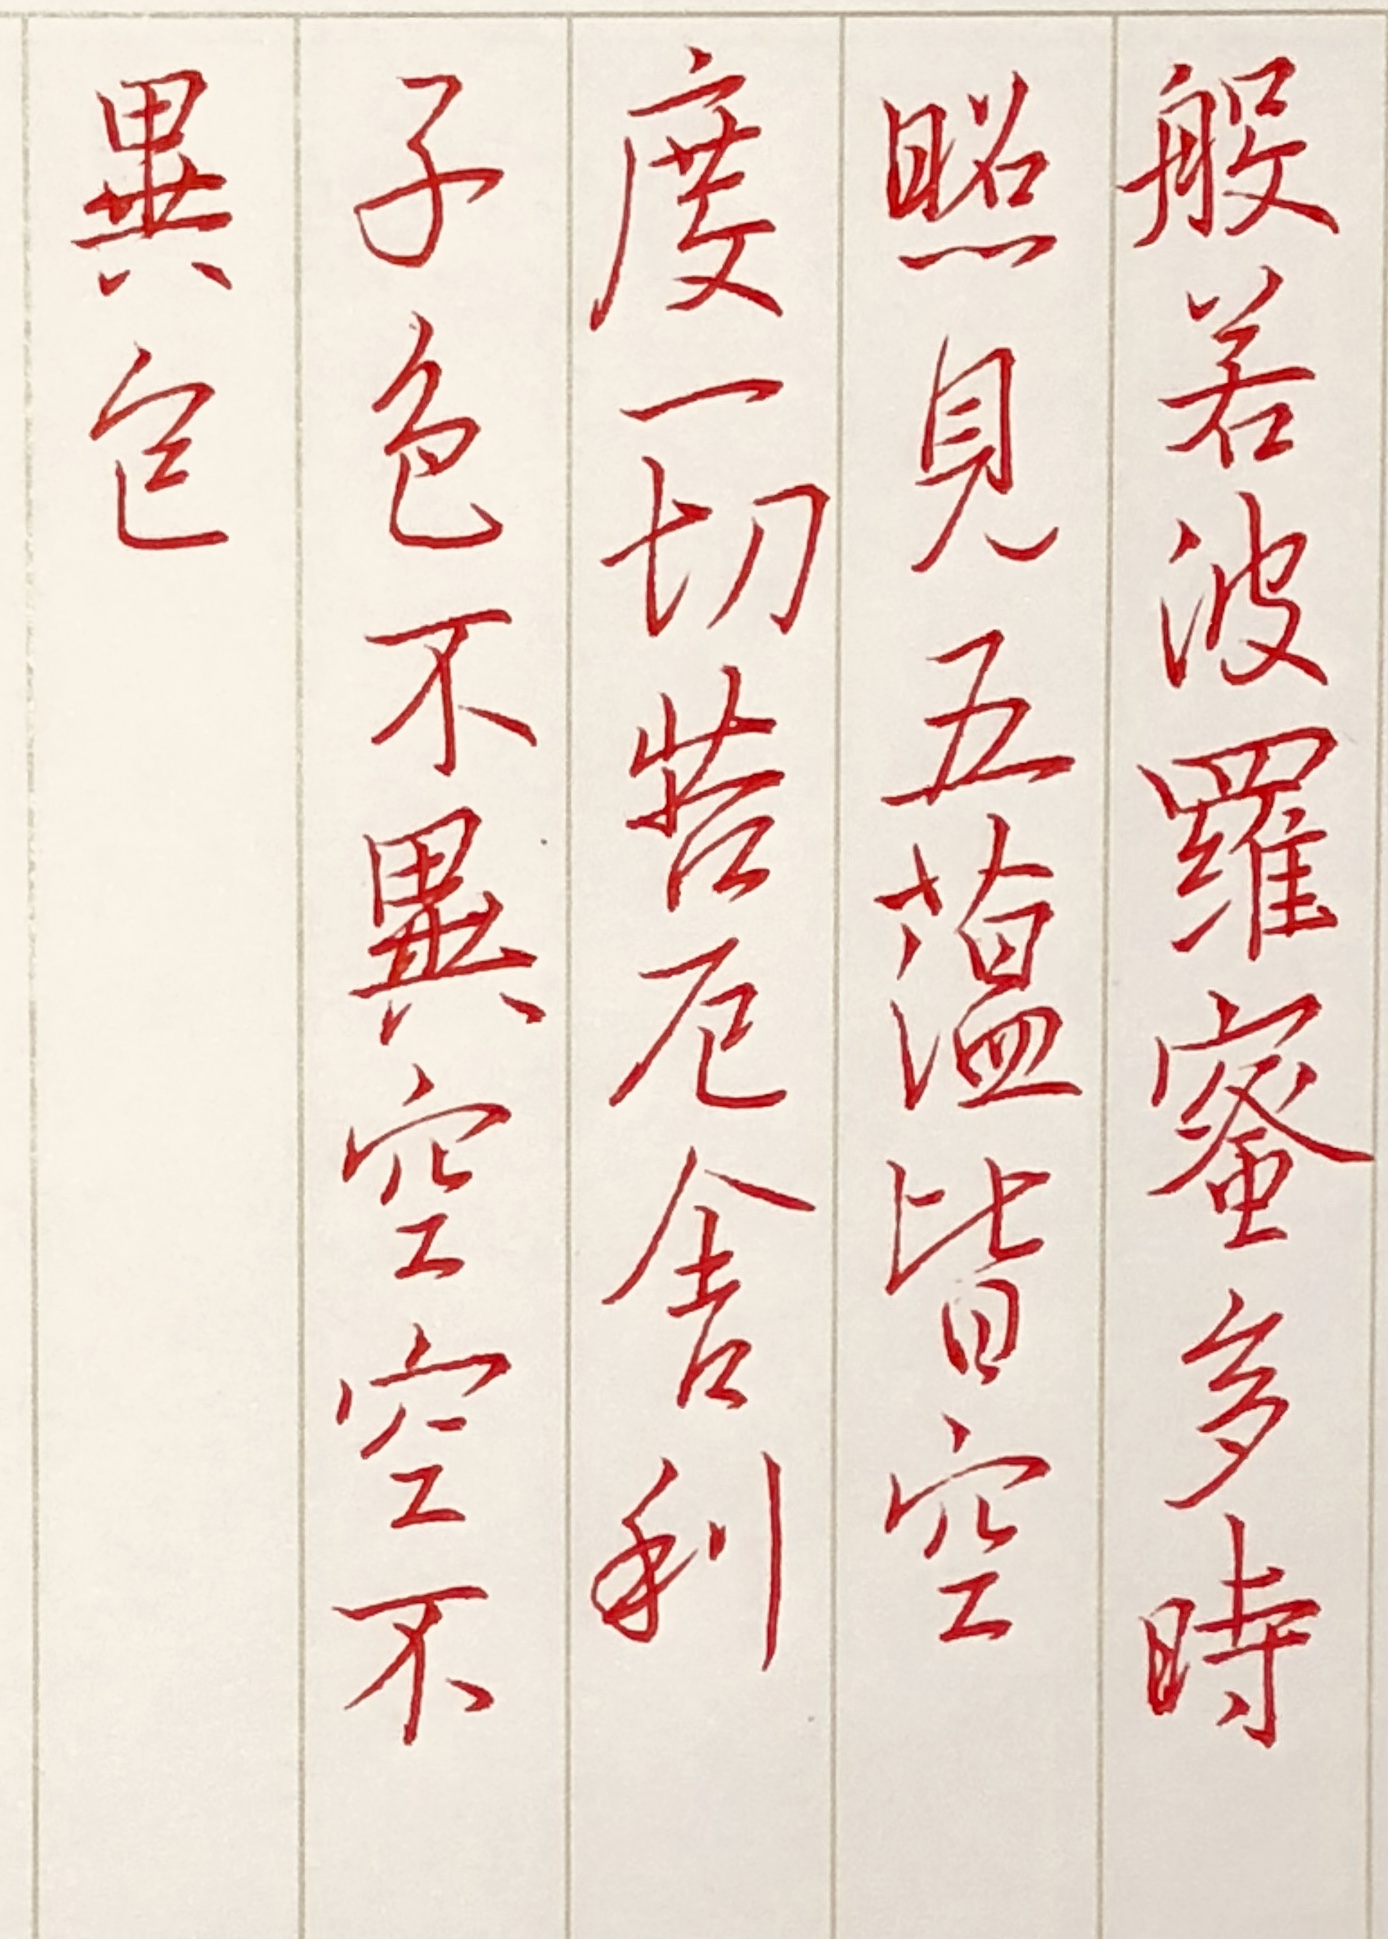 般若波羅蜜多時
照見五蘊皆空
度一切苦厄舍利
子色不異空空不
異色